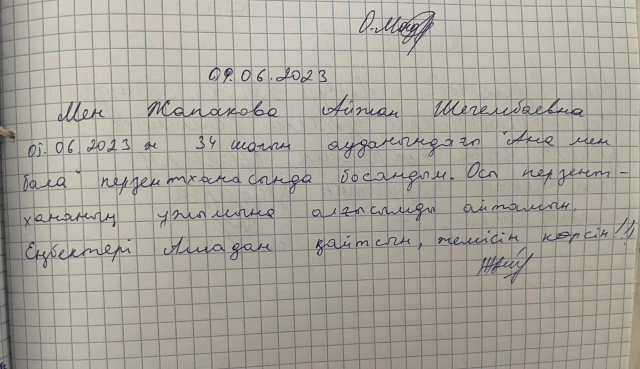 09.06.2023
Мен Жапакова Айжан Шегембаевна
05.06.2023 ж 34 шағын ауданындағы "Ана мен
бала" перзентханасында босандым. Осы перзент-
хананың ұжымына алғысымды айтамын.
Еңбектері Алладан қайтсын, жемісін көрсін!!!